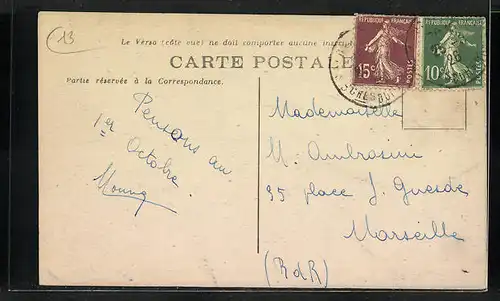 13
Le Verso (côte vue) ne doit comporter aucune
CARTE POSTALE
Partie réservée à la Correspondance.
REPUBLIQUE FRANÇAISE
15c
POSTES
REPUBLIQUE FRANÇAISE
10c
POSTES
CHERBOURG
Pensons au
1er Octobre
Mademoiselle
M. Ambrosini
35 place J. Guesde
Marseille
(B d R)